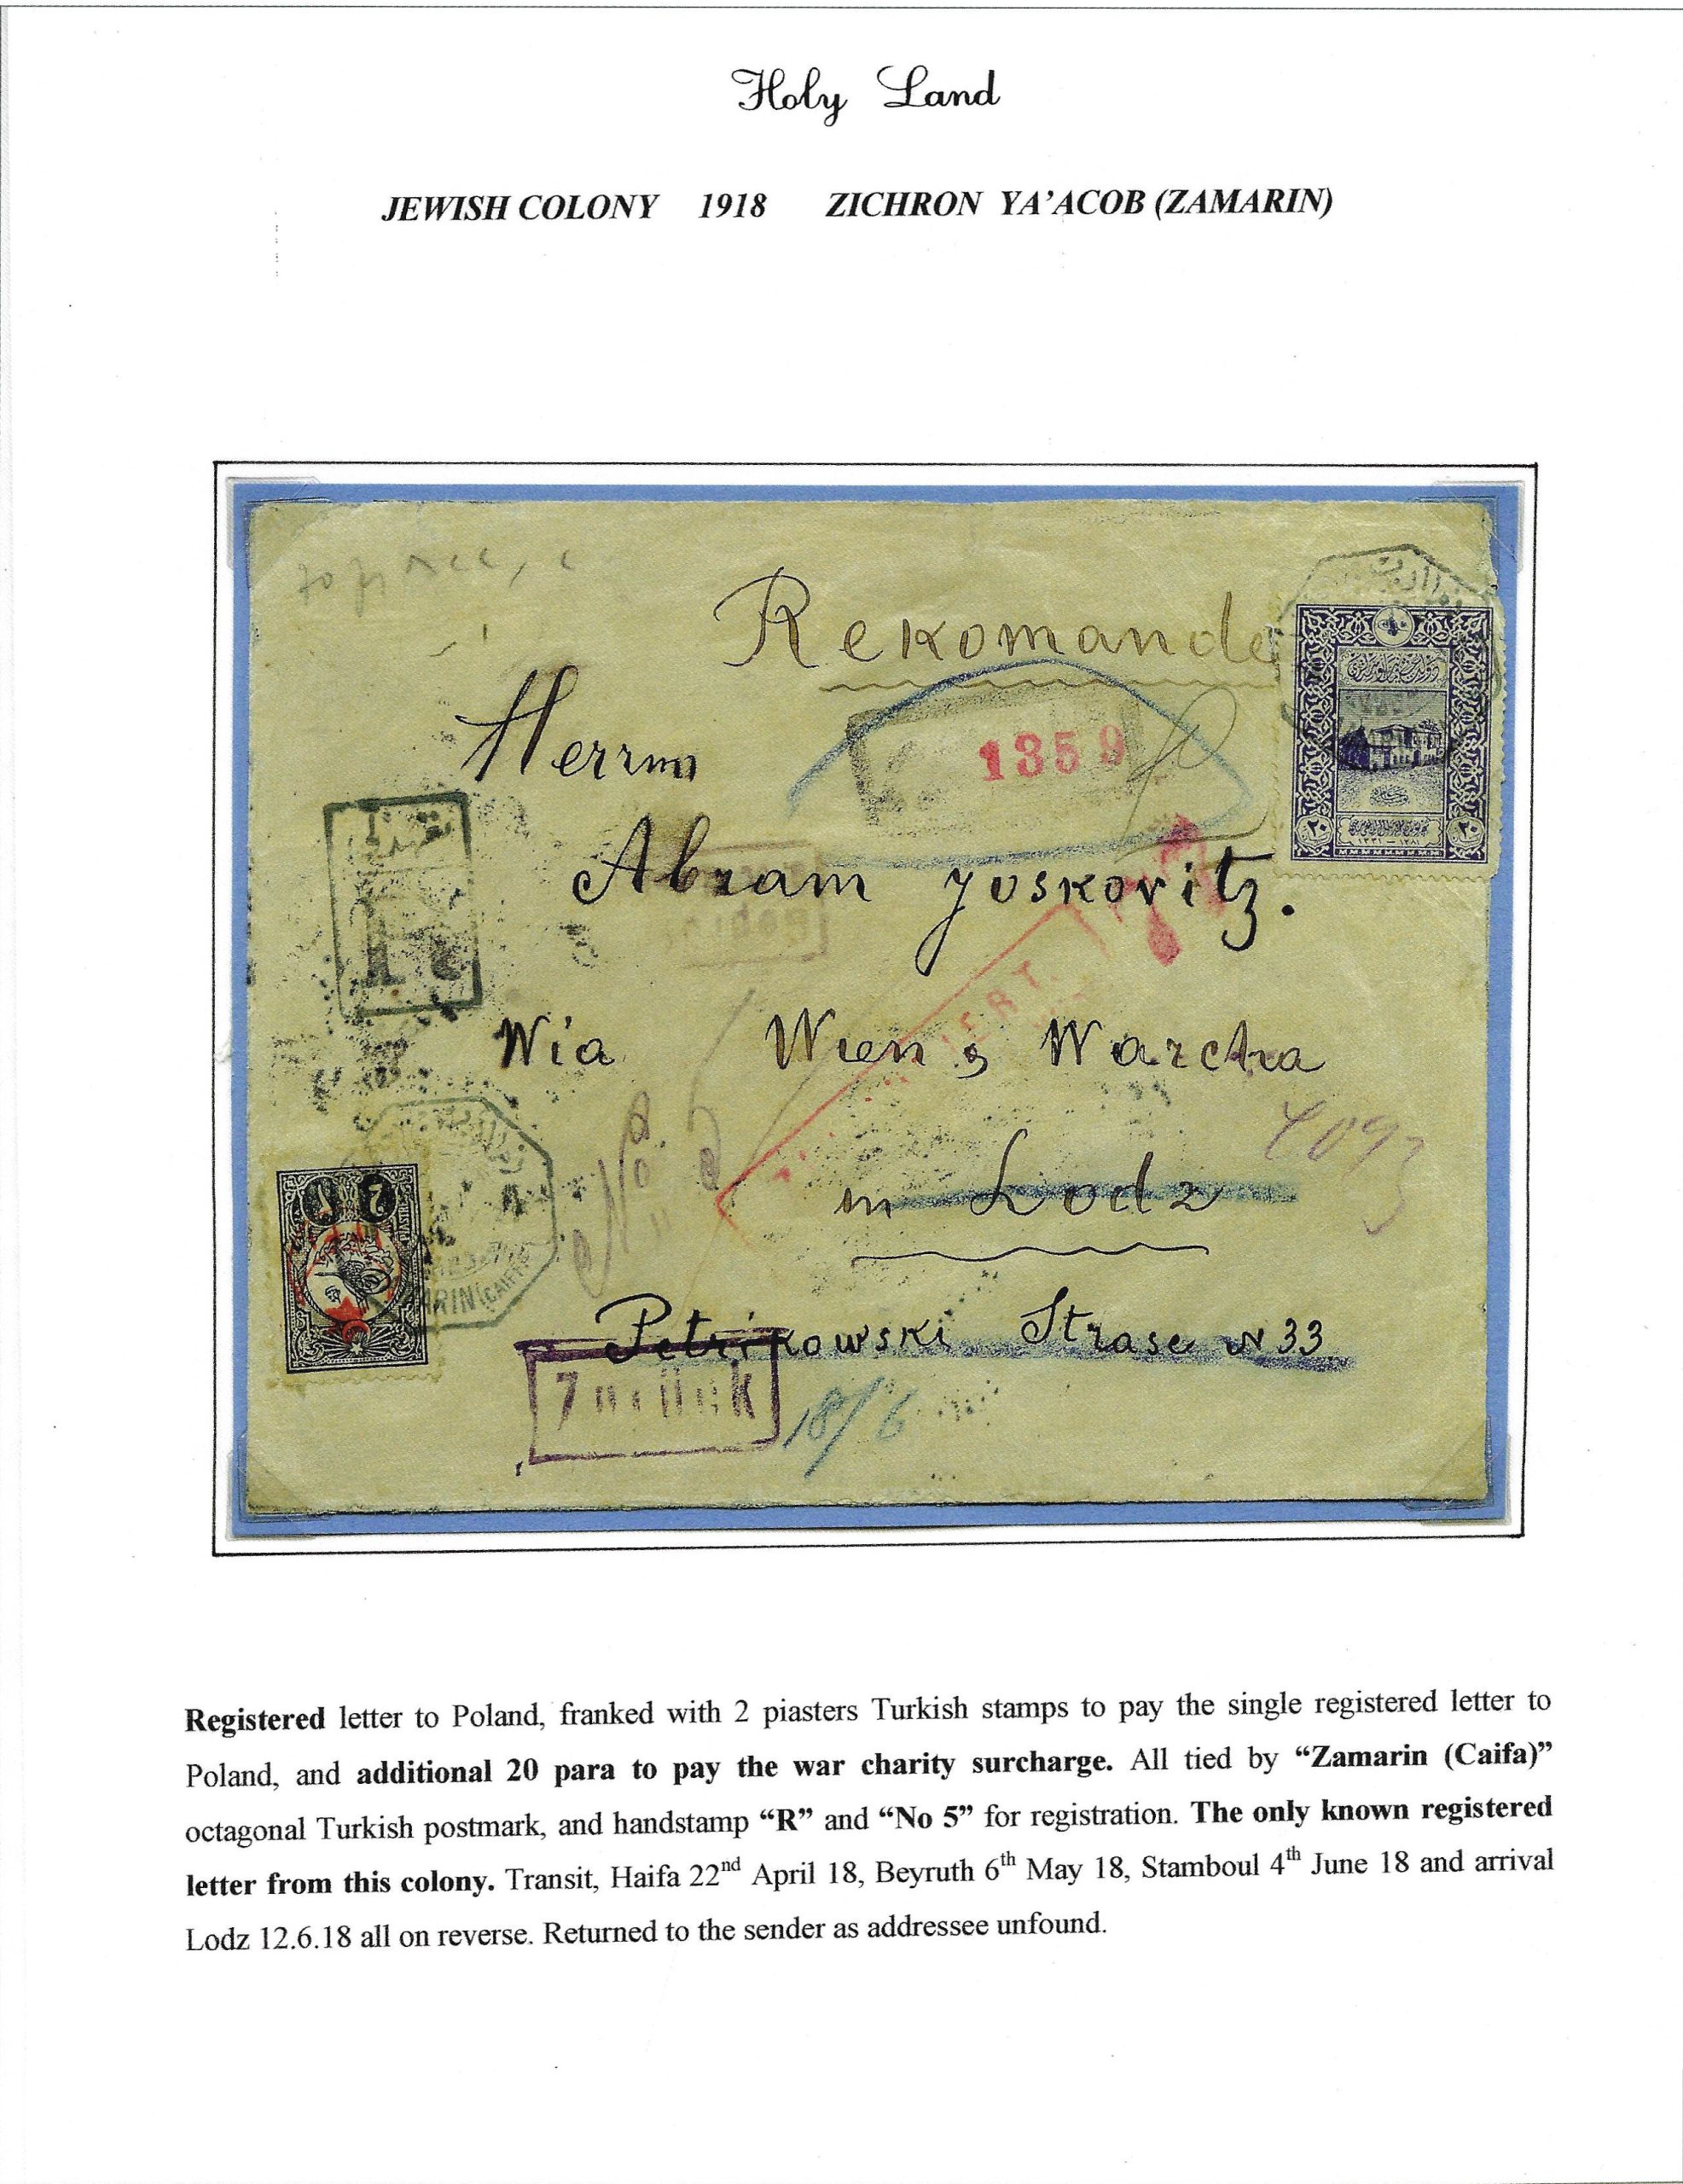 Holy Land
JEWISH COLONY 1918 ZICHRON YA’ACOB (ZAMARIN)
Rekomande
Herrnn
1359
Abram Joskovitz.
R
Wia Wien, Warcha
4093
in Lodz
Petrikowski Strase N 33
Zurück
18/6
٢٠ ٢٠
١٣٣١ — ١٢٨١
Registered letter to Poland, franked with 2 piasters Turkish stamps to pay the single registered letter to
Poland, and additional 20 para to pay the war charity surcharge. All tied by “Zamarin (Caifa)”
octagonal Turkish postmark, and handstamp “R” and “No 5” for registration. The only known registered
letter from this colony. Transit, Haifa 22nd April 18, Beyruth 6th May 18, Stamboul 4th June 18 and arrival
Lodz 12.6.18 all on reverse. Returned to the sender as addressee unfound.